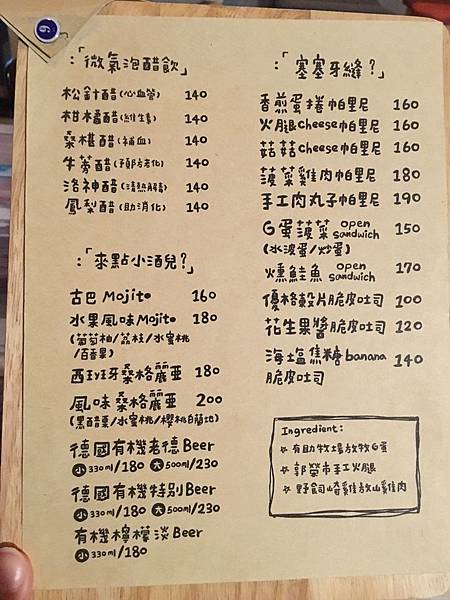 9
:「微氣泡醋飲」
松針醋(心血管) 140
柑橘醋(維生素) 140
桑椹醋(補血) 140
牛蒡醋(預防老化) 140
洛神醋(清熱解毒) 140
鳳梨醋(助消化) 140
:「來點小酒兒?」
古巴 Mojito 160
水果風味Mojito 180
(葡萄柚/荔枝/水蜜桃
/百香果)
西班牙桑格麗亞 180
風味桑格麗亞 200
(黑醋栗/水蜜桃/櫻桃白蘭地)
德國有機老德Beer
小330ml/180 大500ml/230
德國有機特別Beer
小330ml/180 大500ml/230
有機檸檬淡Beer
小330ml/180
:「塞塞牙縫?」
香煎蛋捲帕里尼 160
火腿cheese帕里尼 160
菇菇cheese帕里尼 160
菠菜雞肉帕里尼 180
手工肉丸子帕里尼 190
G蛋菠菜 open sandwich 150
(水波蛋/炒蛋)
燻鮭魚 open sandwich 170
優格穀片脆皮吐司 100
花生果醬脆皮吐司 120
海塩焦糖banana 140
脆皮吐司
Ingredient:
☆ 有助牧場放牧G蛋
☆ 郭榮市手工火腿
☆ 野飼崎雞放山雞肉